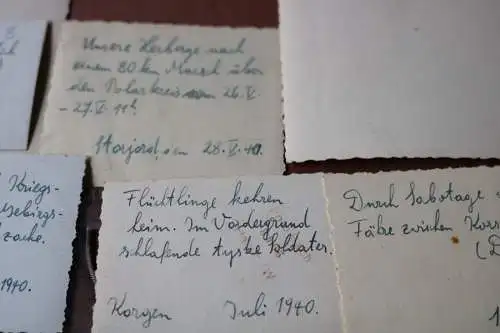 Unsere Herberge nach
einem 80 km Marsch über
den Polarkreis vom 26.V.
- 27.V. 11ʰ.
Storjord, den 28.V.40.
Kriegs-
Gebirgs-
zacke.
1940.
Flüchtlinge kehren
heim. Im Vordergrund
schlafende tyske Soldater.
Korgen Juli 1940.
Durch Sabotage
Fähre zwischen Korr
(D
1